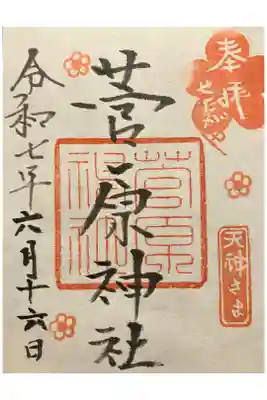 奉拝
菅原神社
菅原
神社
天神さま
令和七年六月十六日